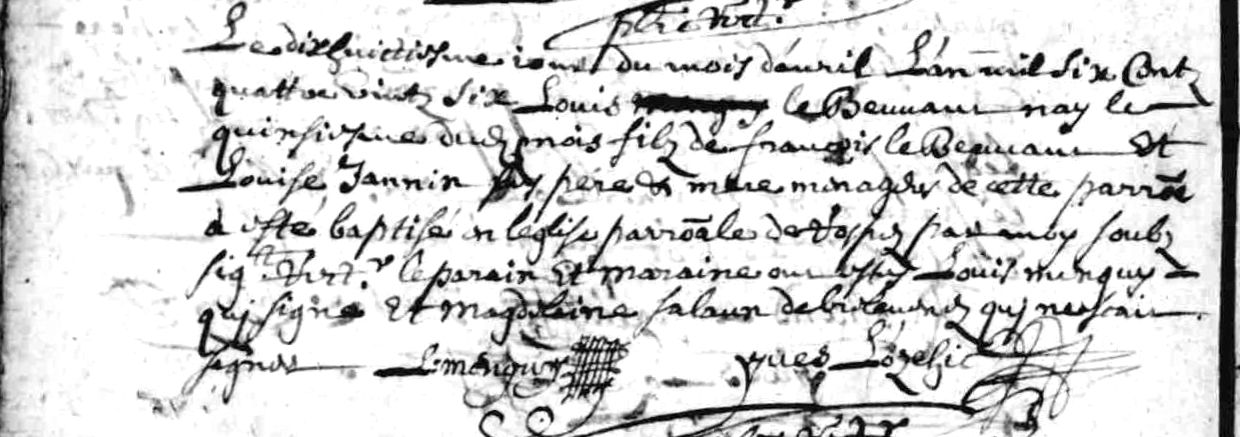 Le dixhuictiesme iour du mois d'auril L'an mil six Centz
quattre vintz six Louis le Beuuant nay le
quinsiesme dud mois filz de françois le Beuuant Et
Louise Jannin ses pere & mere menagers de cette parroē
a esté baptisé en leglise parroāle de par moy soubz
sigt le parain Et maraine ont estes Louis menguy
qui signe Et Magdeleine salaun de qui ne scait
signer L: menguy yves Lozehic